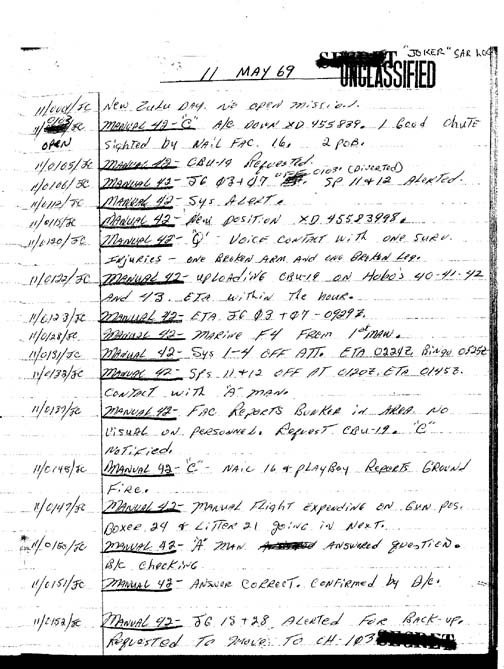 "JOKER" SAR LOG
11 MAY 69
UNCLASSIFIED
11/0001/JC NEW ZULU DAY. NO OPEN MISSION.
JC MANUAL 42-"C" A/C DOWN XD 455839. 1 GOOD CHUTE
OPEN SIGHTED BY NAIL FAC 16. 2 POB.
11/0105/JC MANUAL 42- CBU-19 REQUESTED.
11/0106/JC MANUAL 42- JG 03+07 0103 (DIVERTED) SP 11+12 ALERTED.
11/0112/JC MANUAL 42- SYS ALERT.
11/0115/JC MANUAL 42- NEW POSITION XD 45583998.
11/0120/JC MANUAL 42- "Q" VOICE CONTACT WITH ONE SURV.
INJURIES - ONE BROKEN ARM AND ONE BROKEN LEG.
11/0122/JC MANUAL 42- UPLOADING CBU-19 ON HOBO'S 40-41-42
AND 43. ETA WITHIN THE HOUR.
11/0123/JC MANUAL 42- ETA JG 03+07-0929Z.
11/0128/JC MANUAL 42- MARINE F4 FROM 1ST MAW.
11/0131/JC MANUAL 42- SYS 1-4 OFF ATT. ETA 0224Z. BINGO 0525Z
11/0133/JC MANUAL 42- SPS 11+12 OFF AT 0120Z. ETA 0145Z.
CONTACT WITH "A" MAN.
11/0137/JC MANUAL 42- FAC REPORTS BUNKER IN AREA NO
VISUAL ON PERSONNEL. REQUEST CBU-19. "C"
NOTIFIED.
11/0145/JC MANUAL 42-"C"- NAIL 16 & PLAYBOY REPORTS GROUND
FIRE.
11/0147/JC MANUAL 42- MANUAL FLIGHT EXPENDING ON GUN POS.
BOXER 24 & LITTER 21 GOING IN NEXT.
11/0150/JC MANUAL 42- "A" MAN ANSWERED QUESTION.
B/C CHECKING.
11/0151/JC MANUAL 42- ANSWER CORRECT. CONFIRMED BY B/C.
11/0152/JC MANUAL 42- JG 15+28 ALERTED FOR BACK-UP.
REQUESTED TO MOVE TO CH-103